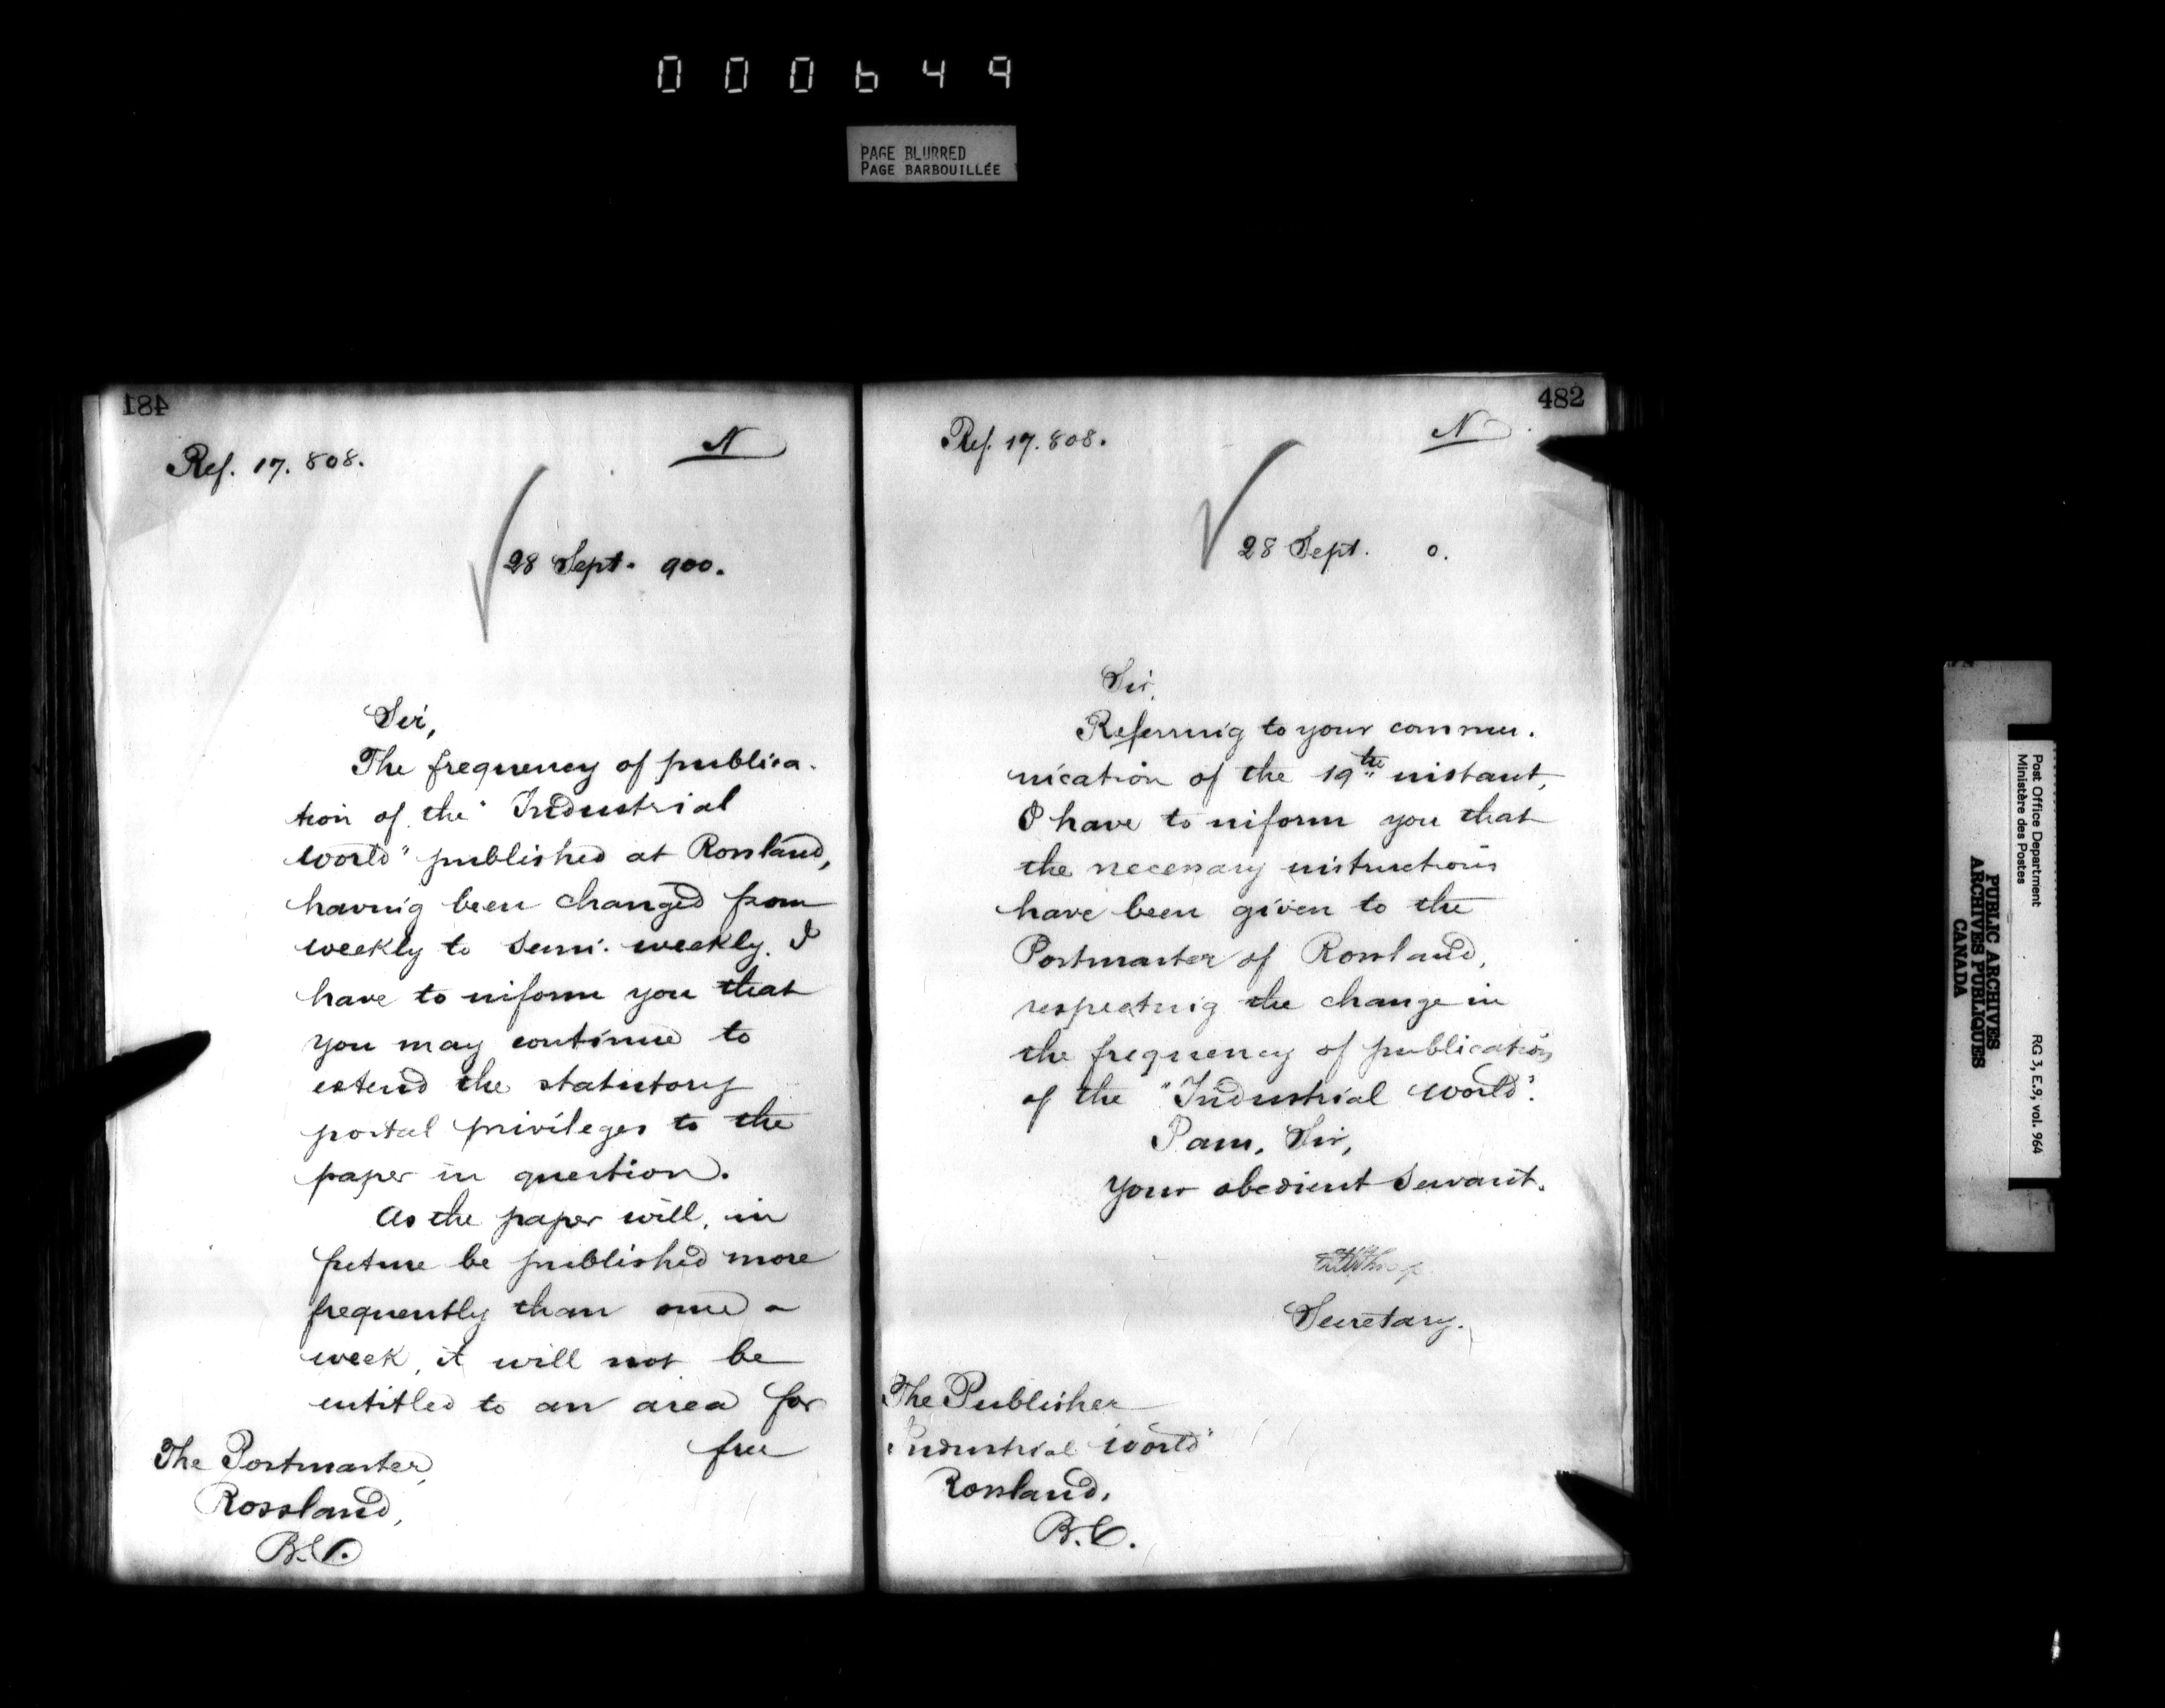 000649
PAGE BLURRED
PAGE BARBOUILLÉE
481
N
Ref. 17.808.
28 Sept. 900.
Sir,
The frequency of publica-
tion of the "Industrial
World" published at Rossland,
having been changed from
weekly to semi-weekly. I
have to inform you that
you may continue to
extend the statutory
postal privileges to the
paper in question.
As the paper will, in
future be published more
frequently than once a
week, it will not be
entitled to an area for
free
The Postmaster,
Rossland,
B.C.
482
N
Ref. 17.808.
28 Sept. 0.
Sir,
Referring to your commu-
nication of the 19th instant,
I have to inform you that
the necessary instructions
have been given to the
Postmaster of Rossland,
respecting the change in
the frequency of publication
of the "Industrial World".
I am, Sir,
Your obedient Servant.
Secretary.
The Publisher
Industrial World"
Rossland,
B.C.
Post Office Department
Ministère des Postes
RG 3, E.9, vol. 964
PUBLIC ARCHIVES
ARCHIVES PUBLIQUES
CANADA